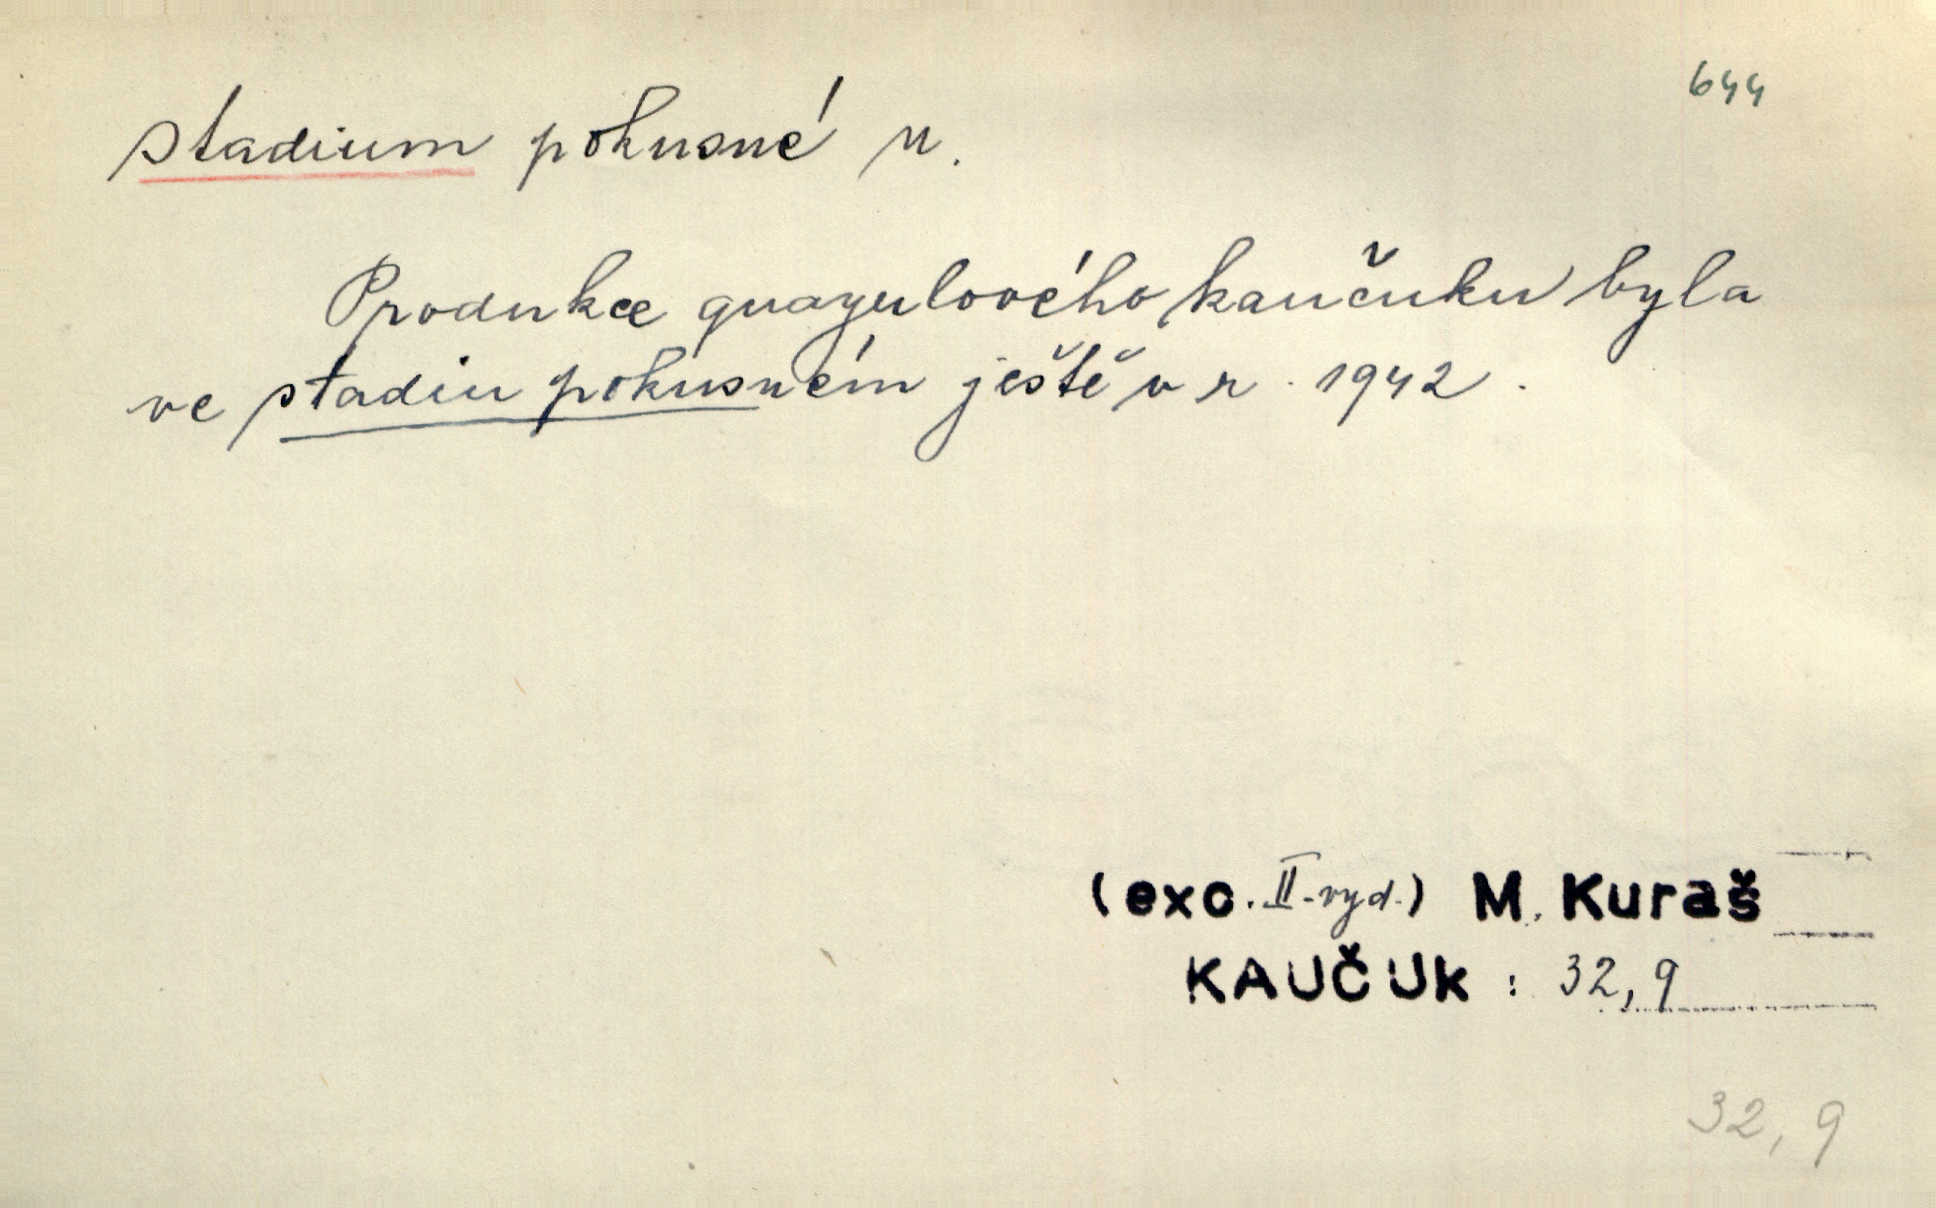 644
stadium pokusné n.
Produkce guayulového kaučuku byla
ve stadiu pokusném ještě v r. 1942.
(exc. II. vyd.) M. Kuraš
KAUČUK : 32,9
32,9